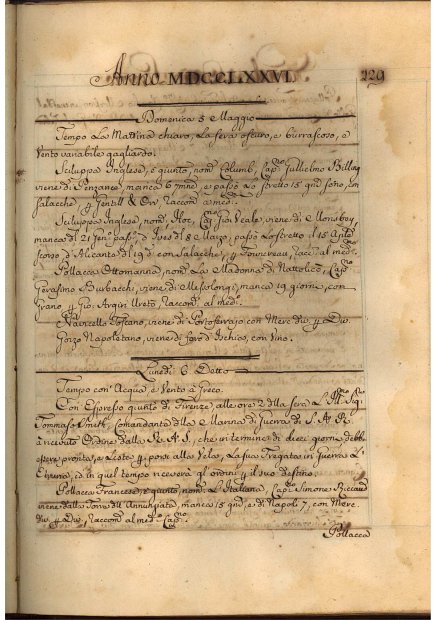 Anno MDCCLXXVI. 229
Domenica 5 Maggio
Tempo La Mattina chiaro, La sera oscuro, e burrascoso, e
Vento variabile gagliardo.
Scialuppa Inglese, è giunto, nom.ª Columb, Cap.no Gullielmo
viene di Penzance, manca 6 mne, e passò Lo stretto 15 gni sono, con
Salacche, p Gentill & Orr Raccom.
Scialuppa Inglese, nom.ª Cap. Gio Veale, viene di
manca di 21 passò Lo stretto il 15
scorso d'Alicante di 19 di con Salacche, p Rac. al med.º
Pollacca Ottomanna, nom.ª La Madonna di Cap.no
Gerasimo viene di Missolongi, manca 19 giorni, con
Grano p Gio: Argiri Racom.ª al med.º
Navicello Toscano, viene di Portoferrajo con Merc. Div. p Div.
Gozzo Napoletano, viene di foro d'Ischia, con vino.
Lunedì 6 Detto
Tempo con Acqua è Vento à Greco.
Con Espresso giunto di Firenze, alle ore 2 della sera L'Ill. Sig.
Tommaso Smith, Comandante della Marina di Guerra di S. A. R.
à ricevuto Ordine dalla R. A. S., che in termine di dieci giorni debba
essere pronta, e Lesta p porsi alla Vela, La sua Fregata in Guerra L'
Etruria, ed in quel tempo riceverà gl'ordini p il suo destino.
Pollacca Francese, è giunto, nom.ª L'Italiana, Cap.no Simone
viene dalla Torre dell' Annunziata, manca 15 gni, e di Napoli 7, con Merc.
Div. p Div. Raccom.ª al med.º Cap.no
Pollacca